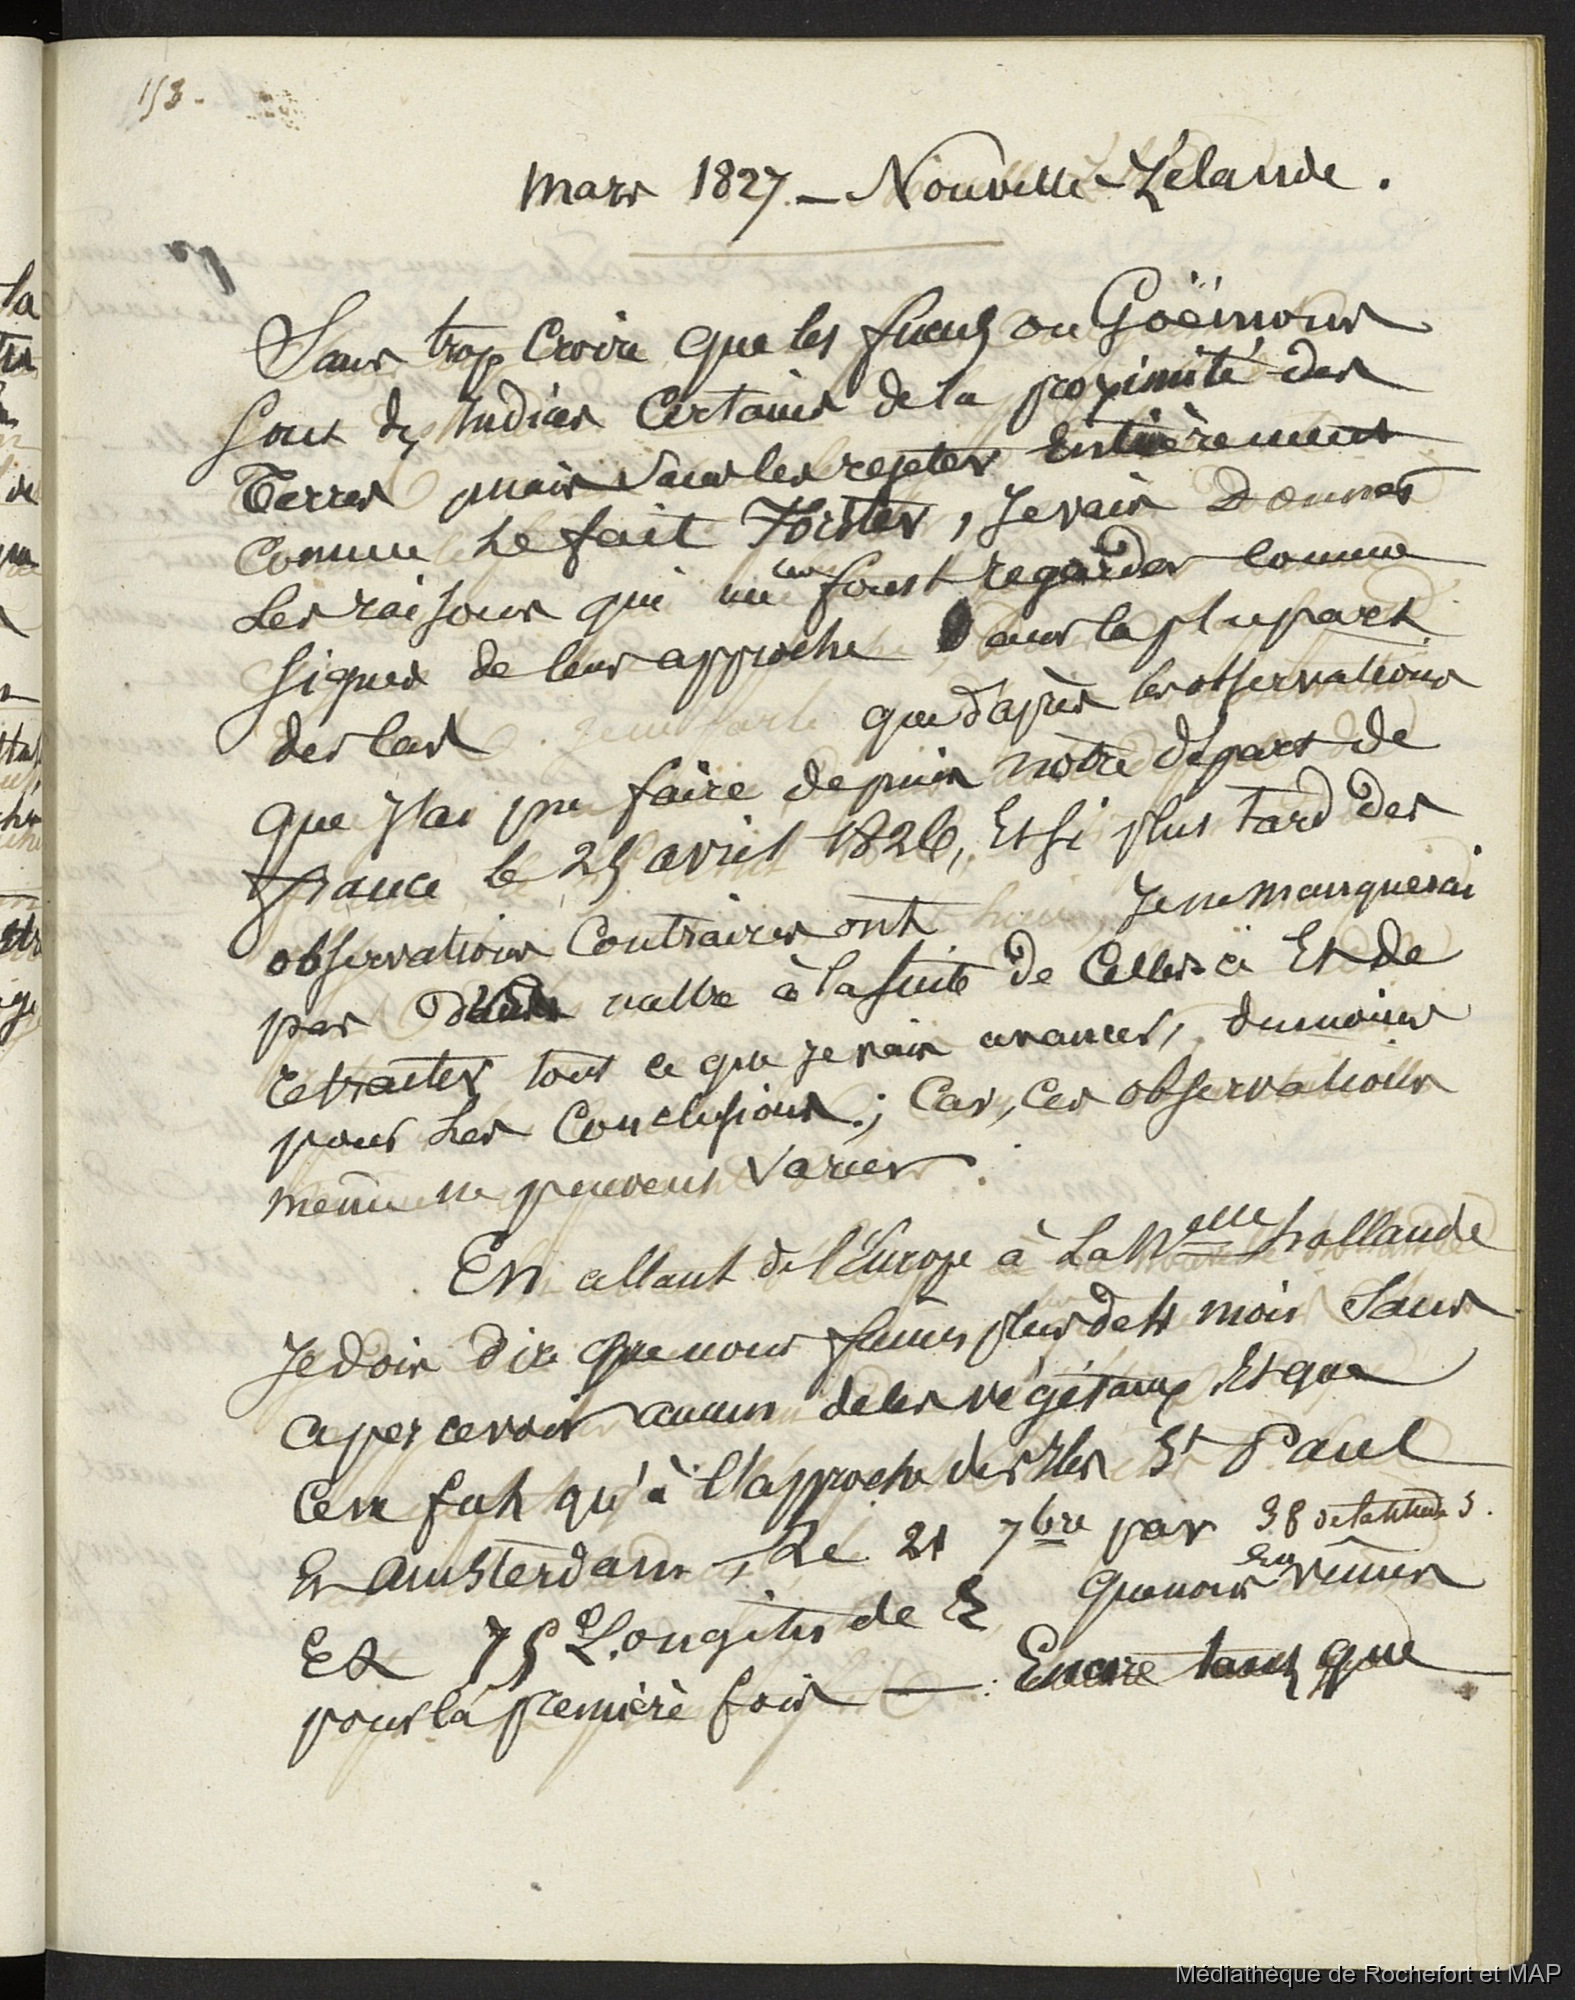 153.
Mars 1827. — Nouvelle-Zélande.
Sans trop Croire que les fucus ou Goëmons
sont des Indices Certains de la proximité des
Terres mais sans les rejeter Entièrement
Comme Le fait Forster, Je vais Donner
Les raisons qui me les font regarder comme
signes de leur approche Dans la plupart
des Cas que d'après les observations
que J'ai pu faire depuis nôtre départ de
france le 25 avril 1826, Et si plus tard des
observations Contraires ont Je ne manquerai
pas mettre à la suite de Celles-ci Et de
retraiter tout ce que Je vais avancer, du moins
pour Les Conclusions; Car, Ces observations
même ne peuvent Varier.
En allant de l'Europe à La Nelle hollande
Je dois dire que nous fumes plus de 4 mois Sans
apercevoir aucun de ces végétaux Et que
Ce ne fut qu'à l'approche des Iles St Paul
Et Amsterdam, Le 21 7bre par 38 de latitude S.
Et 75 D Longitude E que nous en vîmes
pour la première fois — Encore tant que
Médiathèque de Rochefort et MAP